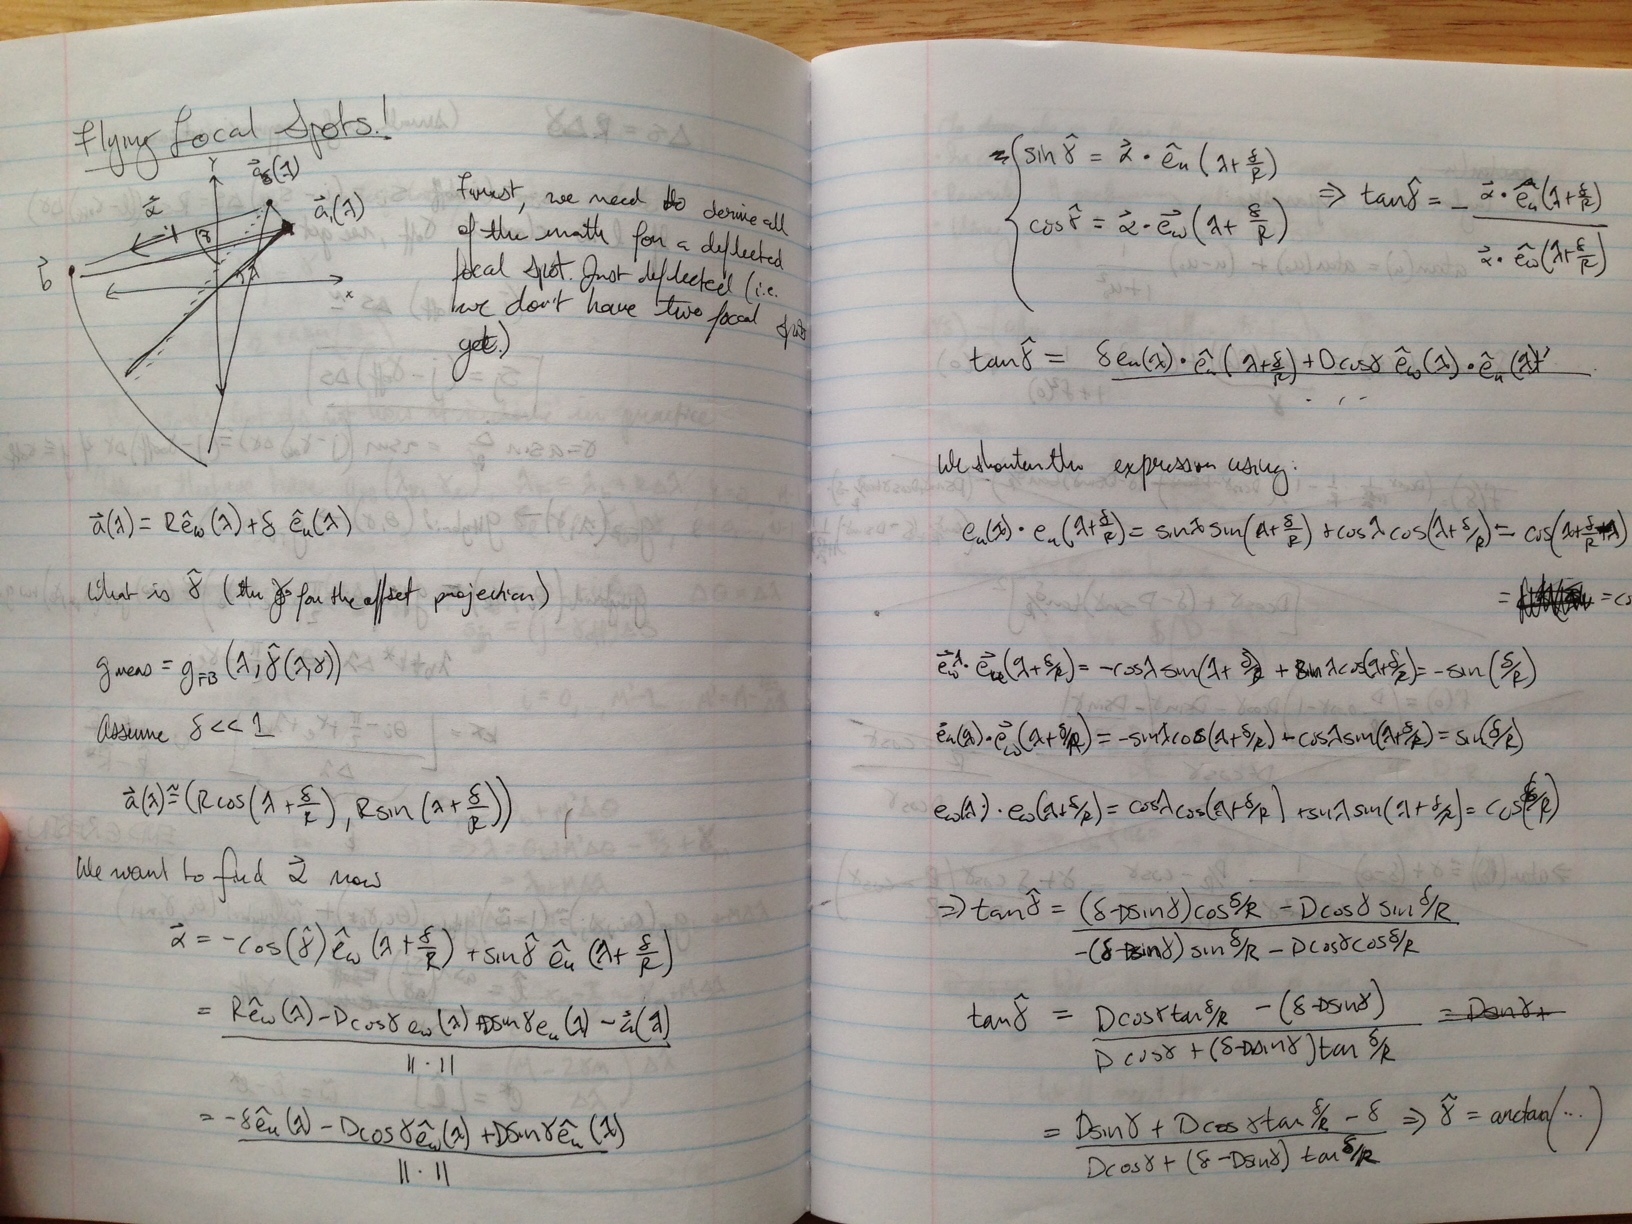 Flying Focal Spots!
Y
a_δ(λ)
a⃗₁(λ)
α⃗
γ
λ
b⃗
x
Furst, we need to derive all
of the math for a deflected
focal spot. Just deflected (i.e.
we don't have two focal spots
yet.)
a⃗(λ) = Rê_w(λ) + δ ê_u(λ)
What is γ̂ (the γ for the offset projection)
g_meas = g_FB (λ, γ̂(λ,γ))
Assume δ << 1
a⃗(λ) ≅ (R cos(λ + δ/R), R sin(λ + δ/R))
We want to find α⃗ now
α⃗ = -cos(γ̂) ê_w (λ + δ/R) + sin γ̂ ê_u (λ + δ/R)
= Rê_w(λ) - D cosγ e_w(λ) + D sinγ e_u(λ) - a⃗(λ) / ||·||
= -δê_u(λ) - D cosγ ê_w(λ) + D sinγ ê_u(λ) / ||·||
{ sin γ̂ = α⃗ · ê_u (λ + δ/R)
cos γ̂ = α⃗ · e⃗_w (λ + δ/R)
⇒ tan γ̂ = - α⃗ · ê_u(λ + δ/R) / α⃗ · ê_w(λ + δ/R)
tan γ̂ = δ e_u(λ) · ê_u (λ + δ/R) + D cosγ ê_w(λ) · ê_u(λ)'
We shorten the expression using:
e_u(λ) · e_u(λ + δ/R) = sinλ sin(λ + δ/R) + cosλ cos(λ + δ/R) = cos(λ + δ/R - λ)
= = co
e⃗_w · e⃗_u(λ + δ/R) = -cosλ sin(λ + δ/R) + sinλ cos(λ + δ/R) = -sin(δ/R)
e⃗_u(λ) · e⃗_w(λ + δ/R) = -sinλ cos(λ + δ/R) + cosλ sin(λ + δ/R) = sin(δ/R)
e_w(λ) · e_w(λ + δ/R) = cosλ cos(λ + δ/R) + sinλ sin(λ + δ/R) = cos(δ/R)
⇒ tan γ̂ = (δ - D sinγ) cos δ/R - D cosγ sin δ/R / -(δ - D sinγ) sin δ/R - D cosγ cos δ/R
tan γ̂ = D cosγ tan δ/R - (δ - D sinγ) / D cosγ + (δ - D sinγ) tan δ/R = D sinγ +
= D sinγ + D cosγ tan δ/R - δ / D cosγ + (δ - D sinγ) tan δ/R ⇒ γ̂ = arctan(...)